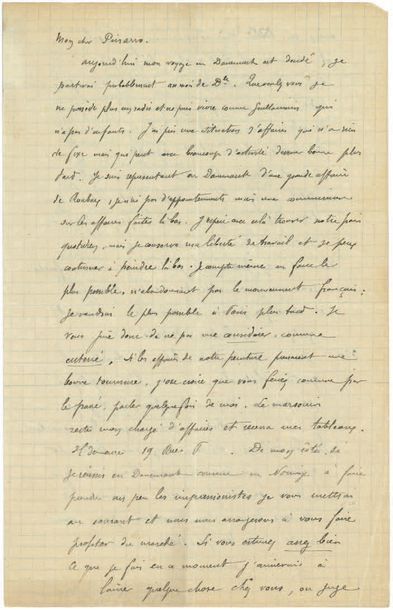 Mon cher Pissarro.
aujourd'hui mon voyage en Danemark est décidé, je
partirai probablement au mois de Dbre. Que voulez vous je
ne possède plus un radis et ne puis vivre comme Guillaumin qui
n'a pas d'enfants. J'ai pris une situation d'affaires qui n'a rien
de fixe mais qui peut avec beaucoup d'activité devenir bonne plus
tard. Je suis représentant en Danemark d'une grande affaire
de Roubaix, je n'ai pas d'appointements mais une commission
sur les affaires faites là bas. J'espère avec cela trouver notre pain
quotidien, mais je conserve ma liberté de travail et je peux
continuer à peindre là bas. Je compte même en faire le
plus possible, n'abandonnant pas le mouvement français.
Je viendrai le plus possible à Paris plus tard. Je
vous prie donc de ne pas me considérer comme
enterré, si les affaires de notre peinture prenaient une
bonne tournure, j'ose croire que vous feriez comme par
le passé, parler quelquefois de moi. Le
reste mon chargé d'affaires et recevra mes tableaux.
19 Rue De mon côté, si
je réussis en Danemark comme en Norvège à faire
prendre un peu les impressionistes je vous mettrai
au courant et nous nous arrangerons à vous faire
profiter du marché. Si vous estimez assez bien
ce que je fais en ce moment j'aimerais à
faire quelque chose chez vous, on juge